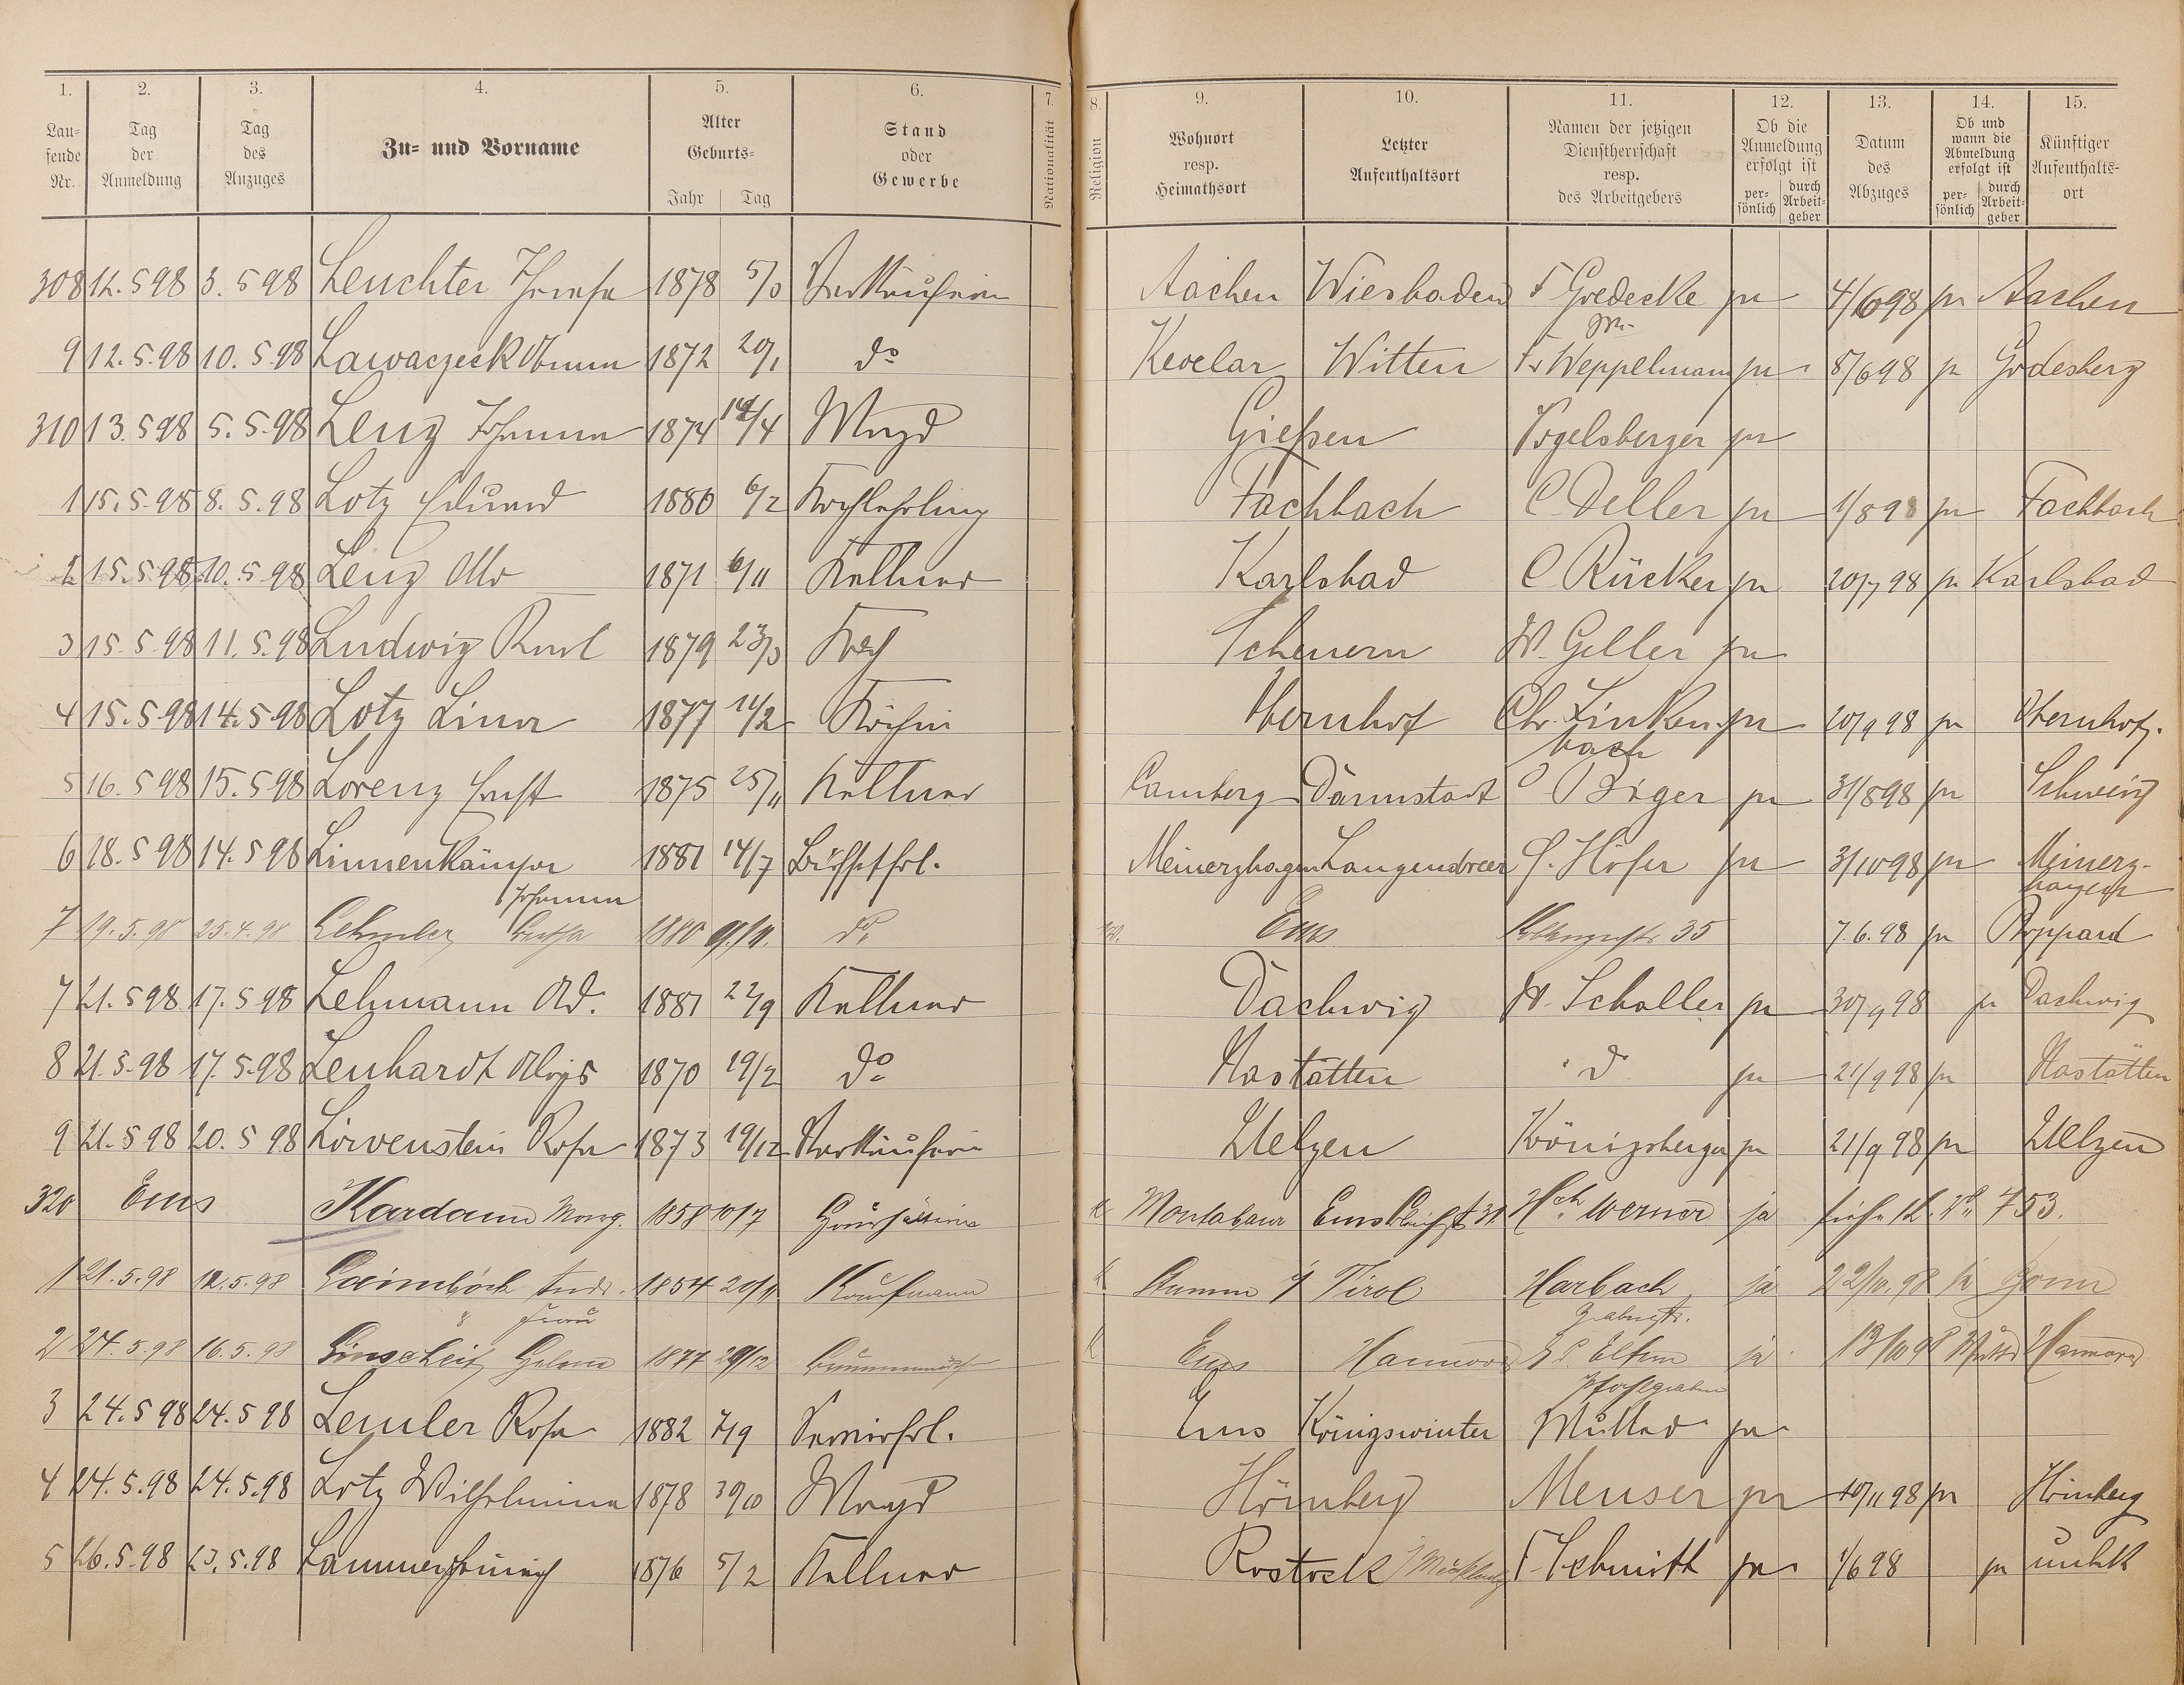 1. 2. 3. 4. 5. 6. 7. 8. 9. 10. 11. 12. 13. 14. 15.
Lau=
fende
Nr.
Tag
der
Anmeldung
Tag
des
Anzuges
Zu= und Vorname
Alter
Geburts=
Jahr Tag
Stand
oder
Gewerbe
Nationalität
Religion
Wohnort
resp.
Heimathsort
Letzter
Aufenthaltsort
Namen der jetzigen
Dienstherrschaft
resp.
des Arbeitgebers
Ob die
Anmeldung
erfolgt ist
per=
sönlich
durch
Arbeit=
geber
Datum
des
Abzuges
Ob und
wann die
Abmeldung
erfolgt ist
per=
sönlich
durch
Arbeit=
geber
Künftiger
Aufenthalts=
ort
308 12. 5 98 3. 5 98 Leuchter Josefa 1878 5/3 Verkäuferin Aachen Wiesbaden F Gredecke ja 4/6 98 ja Aachen
9 12. 5. 98 10. 5. 98 Lawaczeck 1872 20/1 do Kevelar Witten Fr Weppelmann ja 8/6 98 ja Godesberg
310 13. 5 98 5. 5. 98 Lenz Johanna 1874 14/4 Magd Gießen Vogelsberger ja
1 15. 5. 98 8. 5. 98 Lotz Eduard 1880 6/2 Kochlehrling Fachbach C Deller ja 1/8 98 ja Fachbach
2 15. 5. 98 10. 5 98 Lenz Otto 1871 6/11 Kellner Karlsbad C Rücker ja 20/7 98 ja Karlsbad
3 15. 5. 98 11. 5. 98 Ludwig Karl 1879 23/3 Koch Scheuern W. Geller ja
4 15. 5. 98 14. 5. 98 Lotz Lina 1877 14/2 Köchin Obernhof Chr. Linken- ja 20/9 98 ja Obernhof.
bach
5 16. 5 98 15. 5 98 Lorenz Ernst 1875 25/11 Kellner Camberg Darmstadt ja 31/8 98 ja Schweiz
6 18. 5 98 14. 5 98 Linnenkämper 1881 14/7 Büffetfrl. Meinerzhagen Langendreer Höfer ja 3/10 98 ja Meinerz-
Johanna hagen
7 19. 5. 98 25. 4. 98 1880 9/11. do. Ems 35 7. 6. 98 ja Boppard
7 21. 5 98 17. 5 98 Lehmann Ad. 1881 22/9 Kellner Dachwig W. Scholler ja 30/9 98 ja Dachwig
8 21. 5. 98 17. 5. 98 Lenhardt Aloys 1870 19/2 do Nastätten do ja 21/9 98 ja Nastätten
9 21. 5 98 20. 5 98 Löwenstein Rosa 1873 19/12 Verkäuferin Uelzen Königsberger ja 21/9 98 ja Uelzen
320 Ems Kardaun Marg. 1858 10/7 Haushälterin k Montabaur Ems 31. Hch Werner ja siehe K. No 753.
1 21. 5. 98 12. 5. 98 Andr. 1854 20/11 Kaufmann k i/ Tirol Harbach ja 22/10. 98 ja
" Frau Grabenstr.
2 24. 5. 98 16. 5. 98 Linscheit 1877 29/12 Ems Hannover Eltern ja 13/10 98 Mutter Hannover
Pfahlgraben
3 24. 5 98 24. 5 98 Lemler Rosa 1882 7/9 Servierfrl. Ems Königswinter Mutter ja
4 24. 5. 98 24. 5. 98 Lotz Wilhelmina 1878 30/10 Magd Hömberg Meuser ja 10/11 98 ja Hömberg
5 26. 5. 98 23. 5. 98 1876 5/2 Kellner Rostock F. Schmitt ja 1/6 98 ja unbek